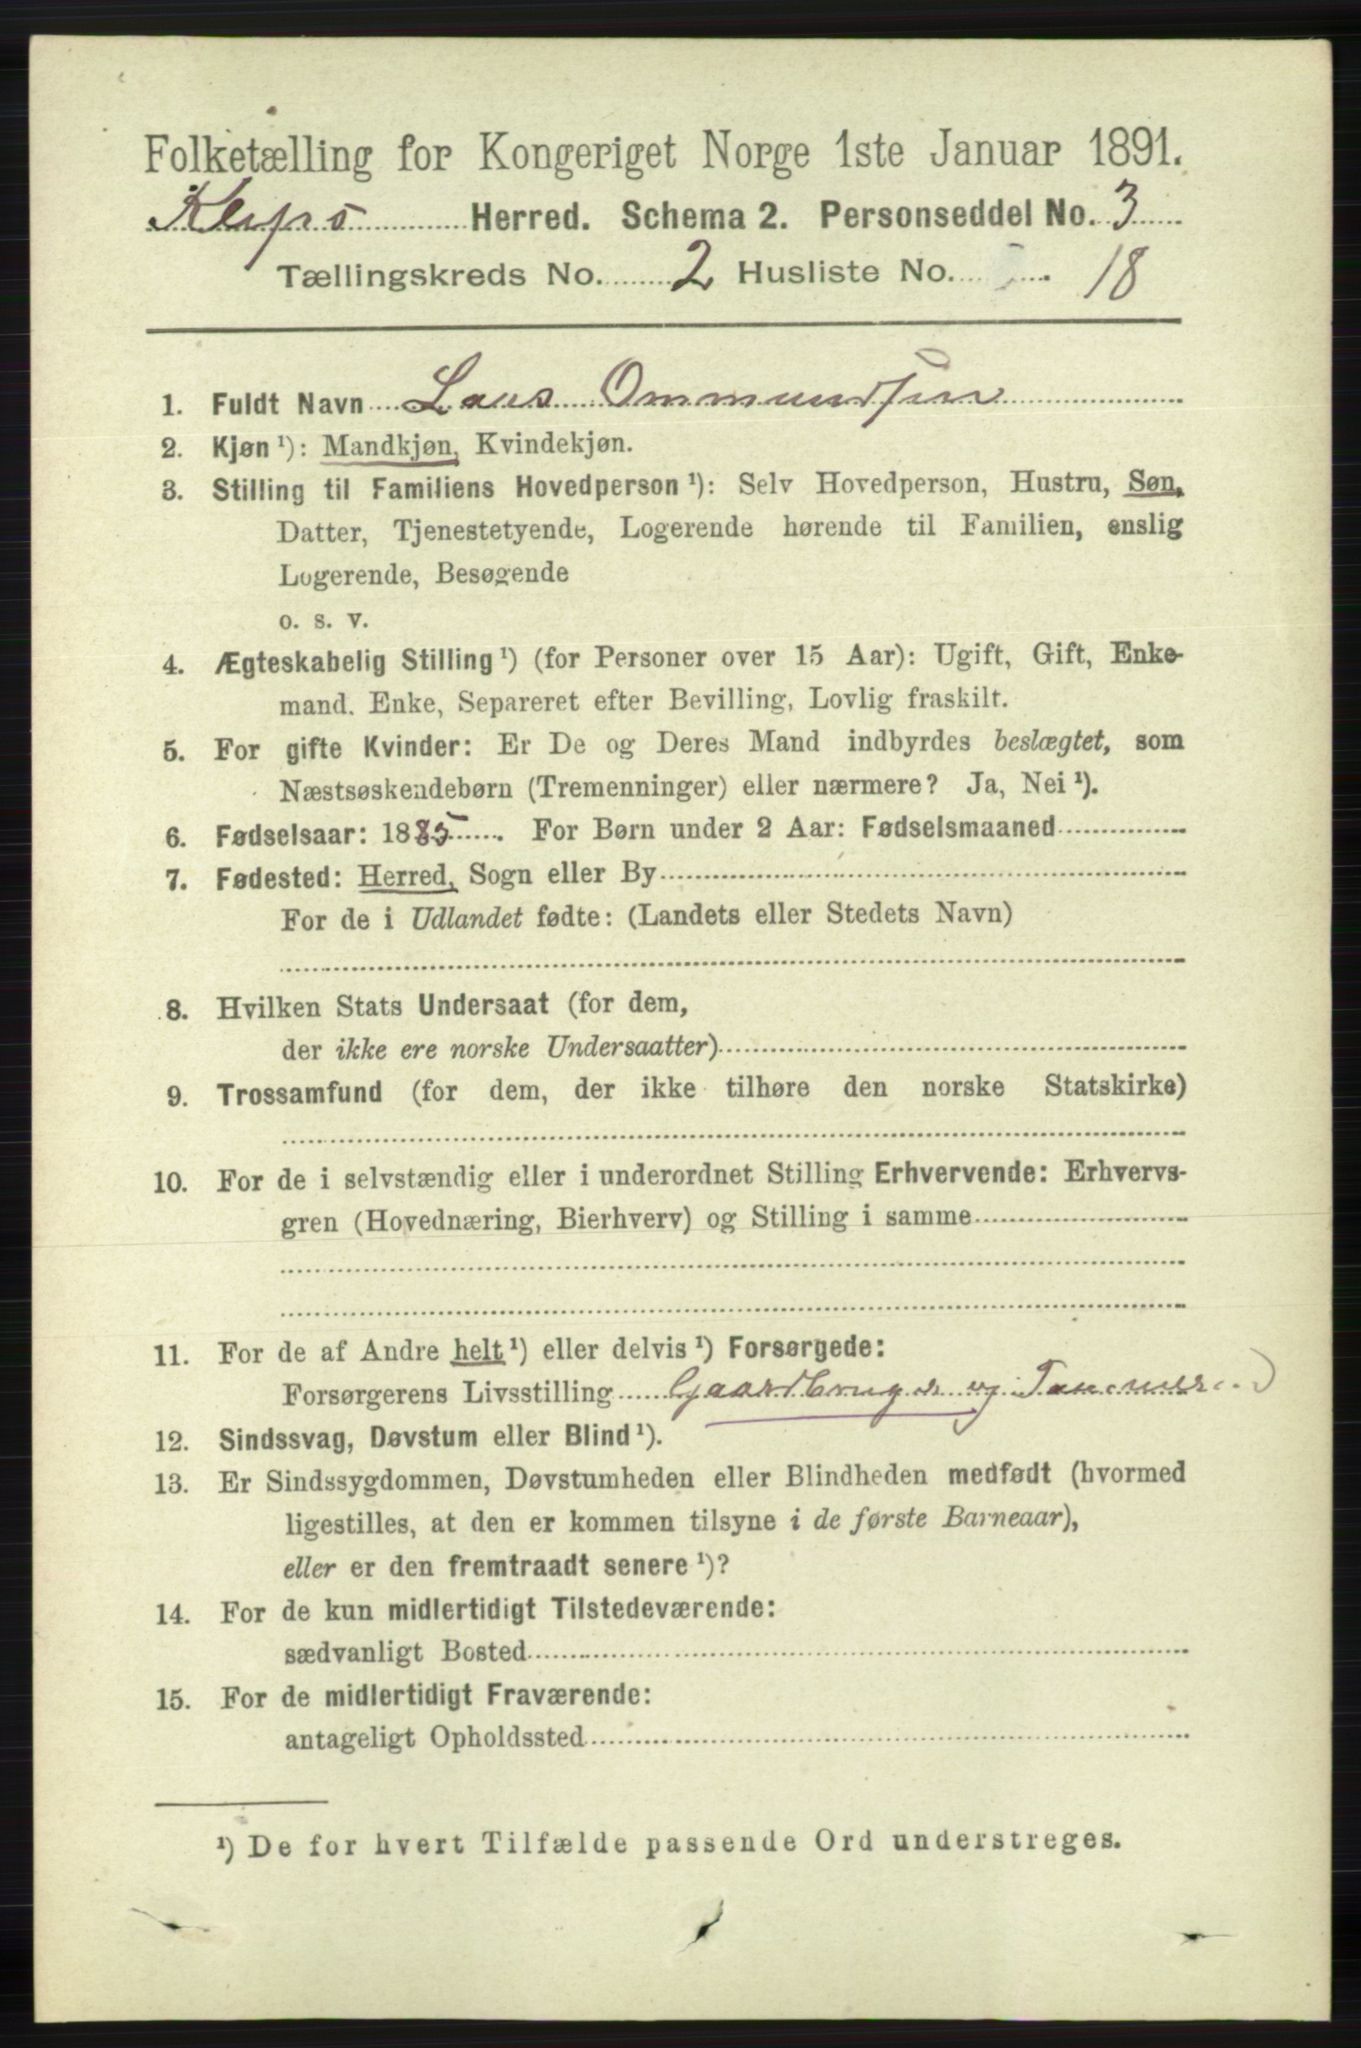 Folketælling for Kongeriget Norge 1ste Januar 1891.
Herred. Schema 2. Personseddel No. 3
Tællingskreds No. 2 Husliste No. 18
1. Fuldt Navn Lars Ommundsen
2. Kjøn ¹): Mandkjøn, Kvindekjøn.
3. Stilling til Familiens Hovedperson ¹): Selv Hovedperson, Hustru, Søn,
Datter, Tjenestetyende, Logerende hørende til Familien, enslig
Logerende, Besøgende
o. s. v.
4. Ægteskabelig Stilling ¹) (for Personer over 15 Aar): Ugift, Gift, Enke-
mand. Enke, Separeret efter Bevilling, Lovlig fraskilt.
5. For gifte Kvinder: Er De og Deres Mand indbyrdes beslægtet, som
Næstsøskendebørn (Tremenninger) eller nærmere? Ja, Nei ¹).
6. Fødselsaar: 1885. For Børn under 2 Aar: Fødselsmaaned
7. Fødested: Herred, Sogn eller By
For de i Udlandet fødte: (Landets eller Stedets Navn)
8. Hvilken Stats Undersaat (for dem,
der ikke ere norske Undersaatter)
9. Trossamfund (for dem, der ikke tilhøre den norske Statskirke)
10. For de i selvstændig eller i underordnet Stilling Erhvervende: Erhvervs-
gren (Hovednæring, Bierhverv) og Stilling i samme
11. For de af Andre helt ¹) eller delvis ¹) Forsørgede:
Forsørgerens Livsstilling Gaardbruger og
12. Sindssvag, Døvstum eller Blind ¹).
13. Er Sindssygdommen, Døvstumheden eller Blindheden medfødt (hvormed
ligestilles, at den er kommen tilsyne i de første Barneaar),
eller er den fremtraadt senere ¹)?
14. For de kun midlertidigt Tilstedeværende:
sædvanligt Bosted
15. For de midlertidigt Fraværende:
antageligt Opholdssted
¹) De for hvert Tilfælde passende Ord understreges.